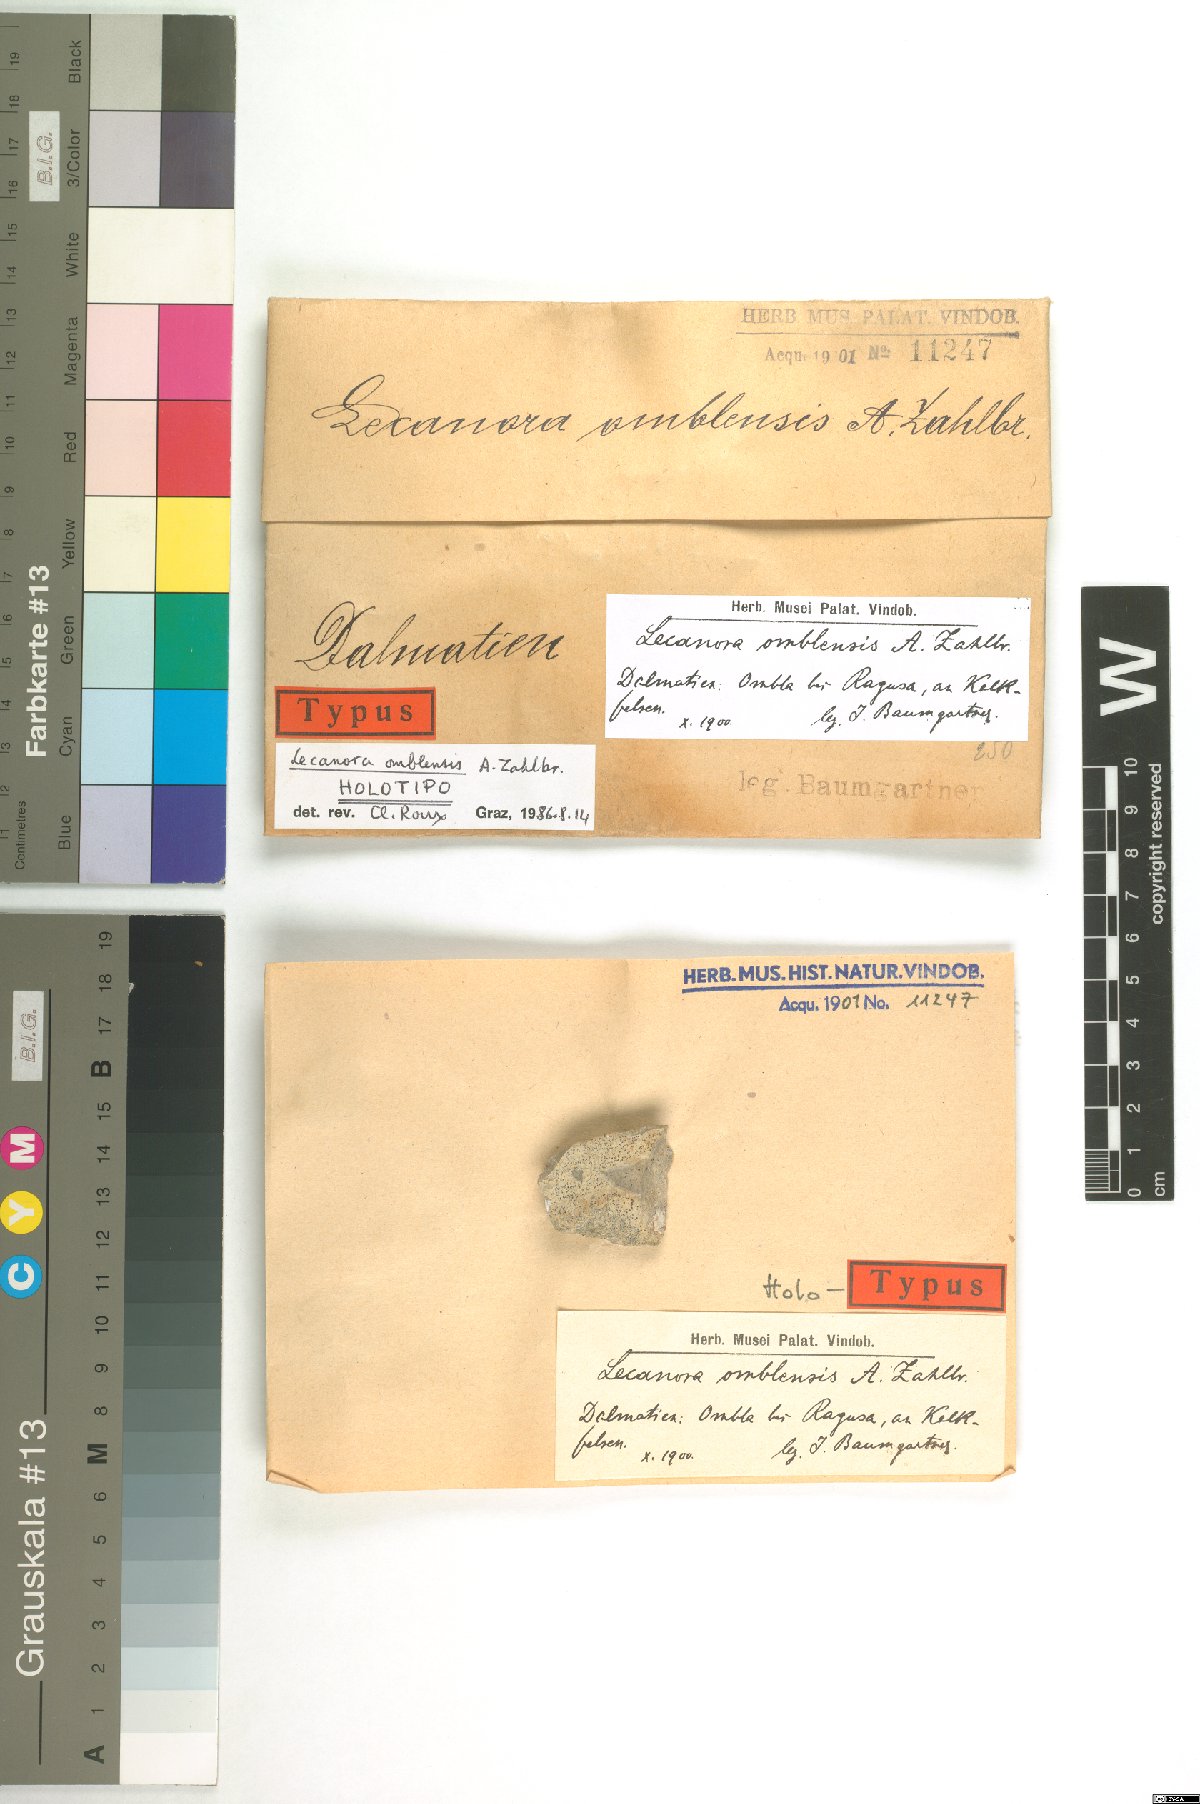 HERB. MUS. PALAT. VINDOB.
Acqu. 1901 No 11247
Lecanora omblensis A. Zahlbr.
Dalmatien
Typus
Herb. Musei Palat. Vindob.
Lecanora omblensis A. Zahlbr.
Dalmatien: Ombla bei Ragusa, an Kalk-
felsen.
X. 1900 leg. J. Baumgartner.
250
leg. Baumgartner
Lecanora omblensis A. Zahlbr.
HOLOTIPO
det. rev. Cl. Roux Graz, 1986.8.14
HERB. MUS. HIST. NATUR. VINDOB.
Acqu. 1901 No. 11247
Holo- Typus
Herb. Musei Palat. Vindob.
Lecanora omblensis A. Zahlbr.
Dalmatien: Ombla bei Ragusa, an Kalk-
felsen.
X. 1900. leg. J. Baumgartner.
Farbkarte #13
B.I.G.
Centimetres
11 12 13 4 5 6 7 8 9 10 11 12 13 14 15 16 17 18 19
Blue Cyan Green Yellow Red Magenta White 3/Color Black
Grauskala #13
B.I.G.
C Y M
A 1 2 3 4 5 6 M 8 9 10 11 12 13 14 15 B 17 18 19
W
0 1 2 3 4 5 6 7 8 9 10
cm
copyright reserved